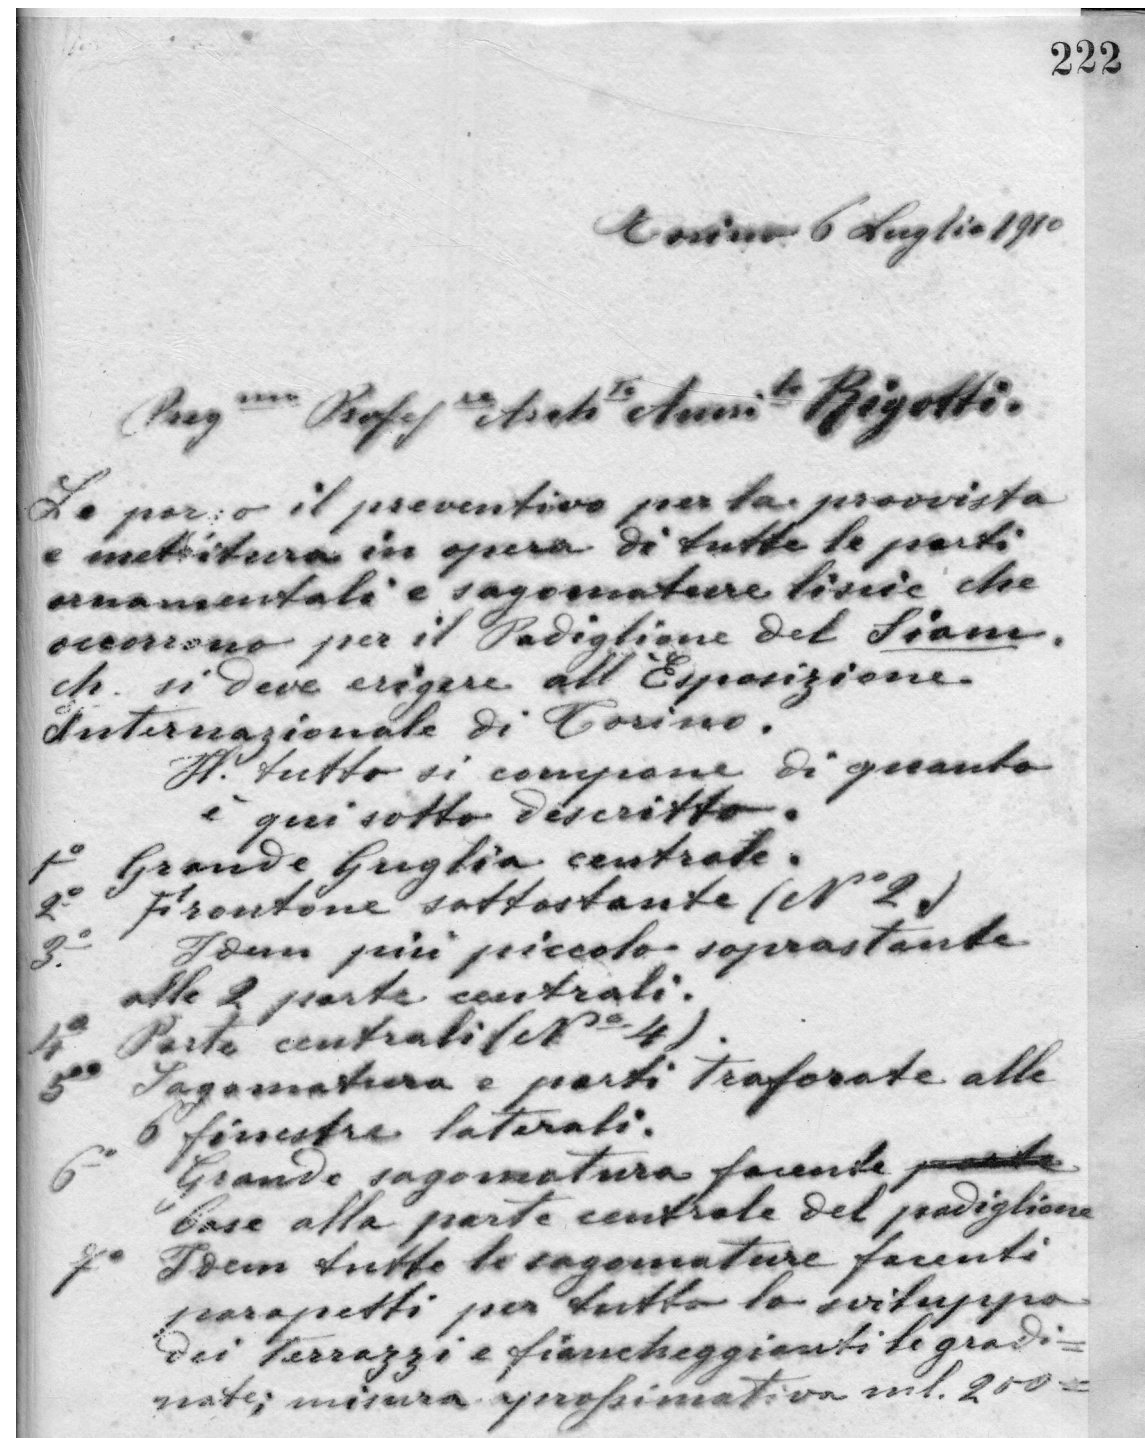 222
Torino 6 Luglio 1910
Preg mo Profes re Arch to Anni le Rigotti.
Le por:o il preventivo per la provvista
e mettitura in opera di tutte le parti
ornamentali e sagomature liscie che
occorrono per il Padiglione del Siam.
ch. si deve erigere all'Esposizione
Internazionale di Torino.
Il tutto si compone di quanto
è qui sotto descritto.
1º Grande Griglia centrale.
2º Frontone sottostante (Nº 2.)
3º. Idem più piccolo soprastante
alle 2 porte centrali.
4º Porte centrali (Nº 4).
5º Sagomatura e parti traforate alle
6 finestre laterali.
6º Grande sagomatura facente parte
base alla parte centrale del padiglione
7º Idem tutte le sagomature facenti
parapetti per tutto lo sviluppo
dei terrazzi e fiancheggianti le gradi=
nate; misura aprossimativa ml. 200=